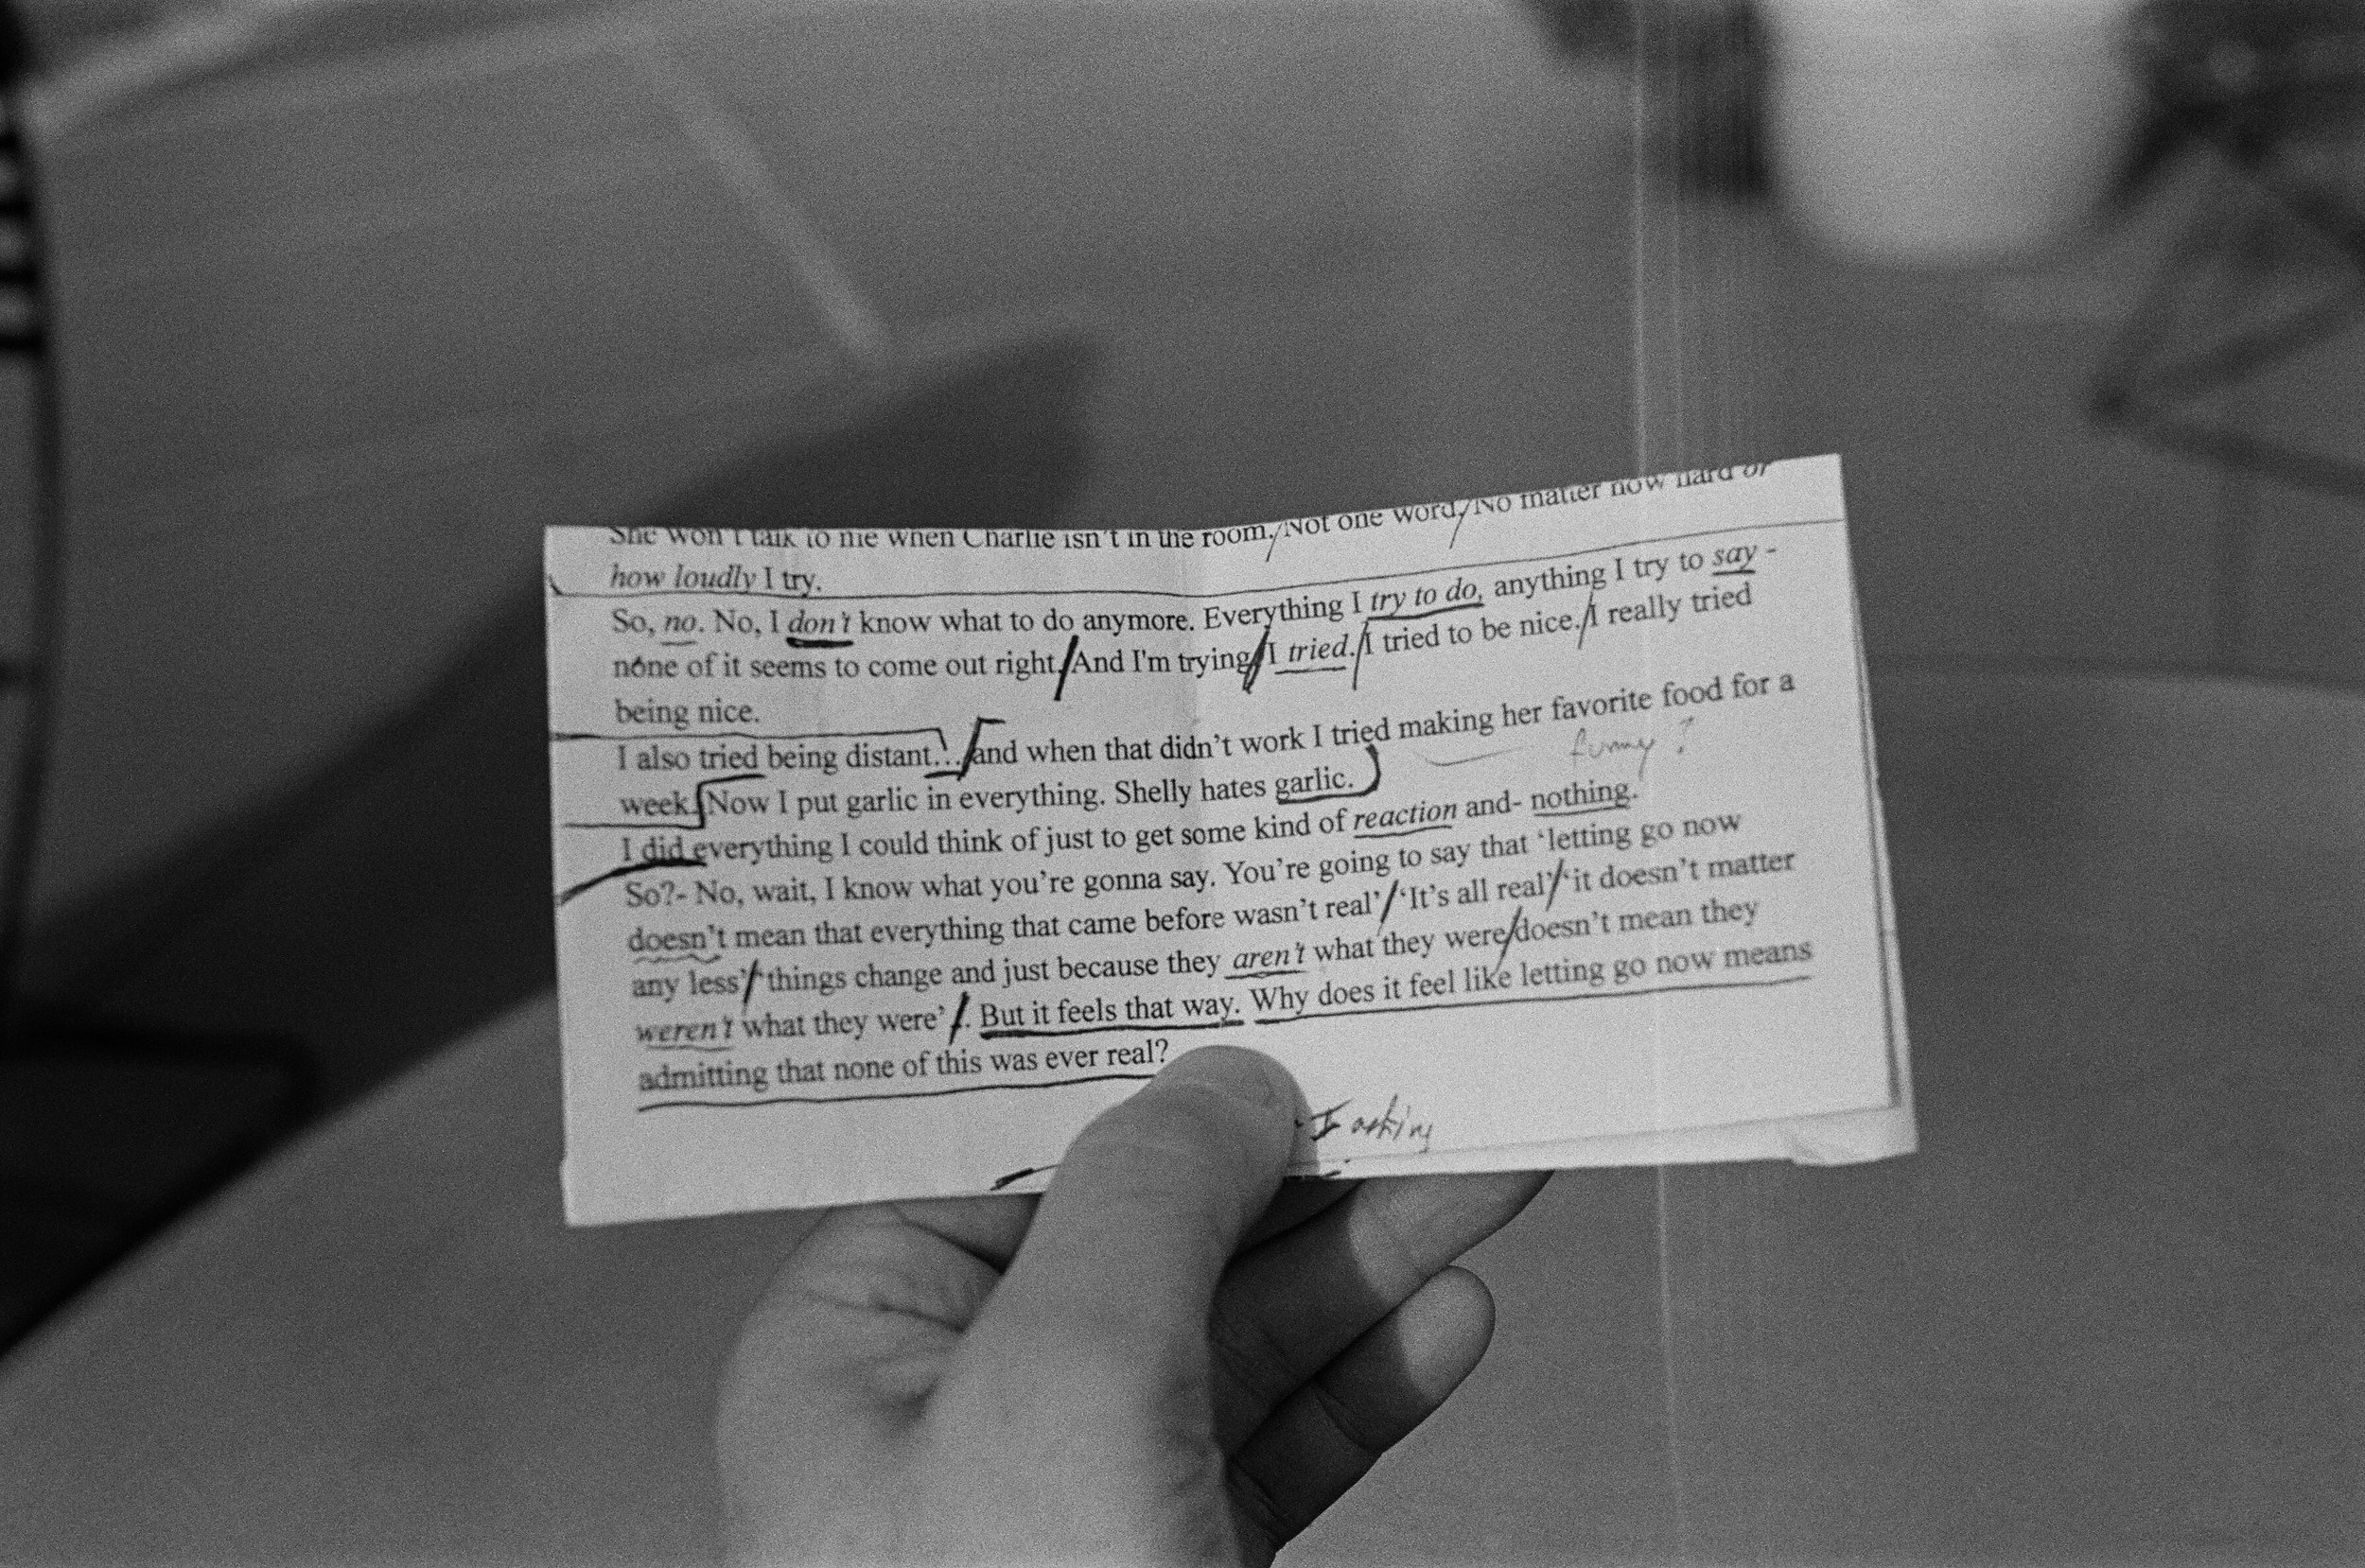 She won't talk to me when Charlie isn't in the room. Not one word. No matter how hard or
how loudly I try.
So, no. No, I don't know what to do anymore. Everything I try to do, anything I try to say -
none of it seems to come out right. And I'm trying I tried. I tried to be nice. I really tried
being nice.
I also tried being distant... and when that didn't work I tried making her favorite food for a
funny?
week. Now I put garlic in everything. Shelly hates garlic.
I did everything I could think of just to get some kind of reaction and- nothing.
So?- No, wait, I know what you're gonna say. You're going to say that 'letting go now
doesn't mean that everything that came before wasn't real' 'It's all real' 'it doesn't matter
any less' 'things change and just because they aren't what they were doesn't mean they
weren't what they were'. But it feels that way. Why does it feel like letting go now means
admitting that none of this was ever real?
I asking